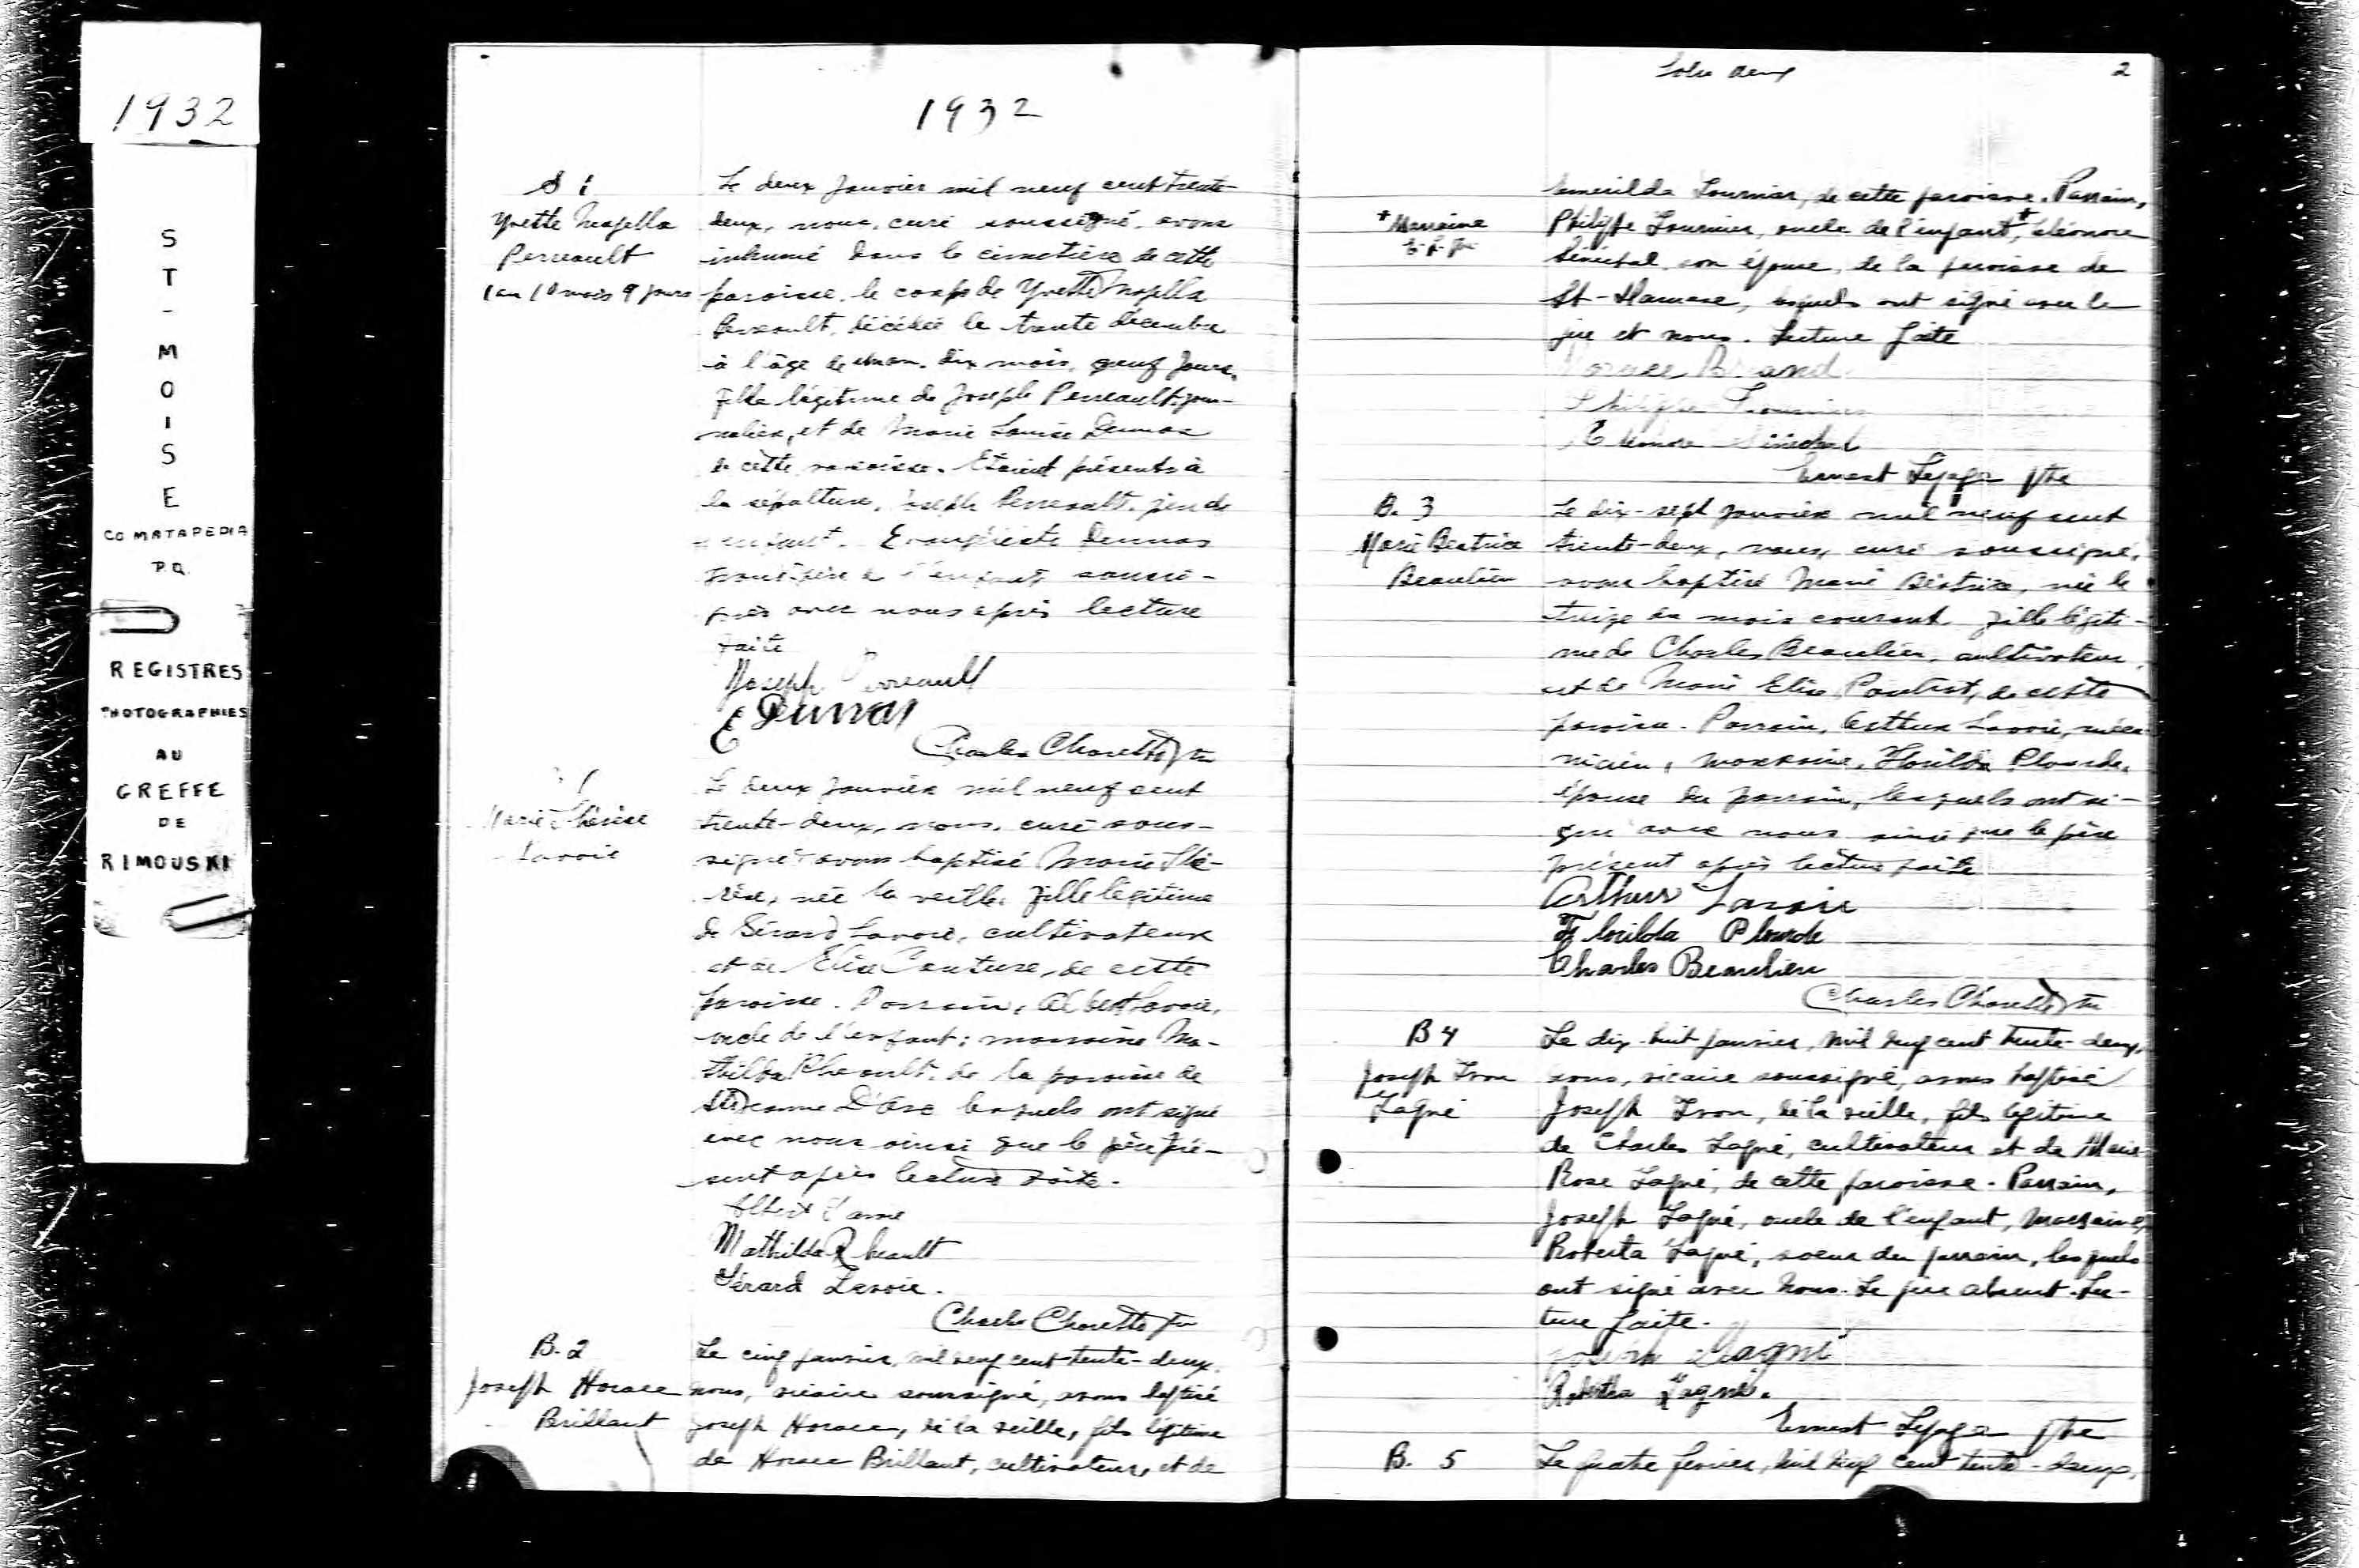 1932
ST-MOISE
CO MATAPEDIA
P.Q.
REGISTRES
PHOTOGRAPHIES
AU
GREFFE
DE
RIMOUSKI
1932
S 1
Yvette Majella
Perreault
1 an 10 mois 9 jours
Le deux janvier mil neuf cent trente-
deux, nous, curé soussigné, avons
inhumé dans le cimetière de cette
paroisse, le corps de Yvette Majella
Perreault, décédée le trente décembre
à l'âge de un an, dix mois, neuf jours,
fille légitime de Joseph Perreault, jour-
nalier, et de Marie Louise Dumas
de cette paroisse. Etaient présents à
la sépulture, Joseph Perreault, père de
l'enfant, Evangéliste Dumas
grand-père de l'enfant soussi-
gnés avec nous après lecture
faite
Joseph Perreault
E Dumas
Charles Charette ptre
Marie Thérèse
Lavoie
Le deux janvier mil neuf cent
trente-deux, nous, curé sous-
signé avons baptisé Marie Thé-
rèse, née la veille, fille légitime
de Gérard Lavoie, cultivateur
et de Elise Couture, de cette
paroisse. Parrain, Albert Lavoie,
oncle de l'enfant; marraine Ma-
thilda Rheault, de la paroisse de
Ste Jeanne D'Arc lesquels ont signé
avec nous ainsi que le père pré-
sent après lecture faite.
Albert Lavoie
Mathilda Rheault
Gérard Lavoie.
Charles Charette ptre
B. 2
Joseph Horace
Brillant
Le cinq janvier, mil neuf cent trente-deux,
nous, vicaire soussigné, avons baptisé
Joseph Horace, né la veille, fils légitime
de Horace Brillant, cultivateur, et de
Folio deux
2
Emerilda Fournier, de cette paroisse. Parrain,
* Marraine
Philippe Fournier, oncle de l'enfant,* Eléonore
Sénéchal son épouse, de la paroisse de
St-Damase, lesquels ont signé avec le
père et nous. Lecture faite
Horace Brillant
Philippe Fournier
Eléonore Sénéchal
Ernest Lepage ptre
B. 3
Marie Beatrice
Beaulieu
Le dix-sept janvier mil neuf cent
trente-deux, nous, curé soussigné,
avons baptisé Marie Béatrice, née le
treize du mois courant fille légiti-
me de Charles Beaulieu, cultivateur,
et de Marie Elise, de cette
paroisse. Parrain, Arthur Lavoie, méca-
nicien, marraine, Florilda Plourde,
épouse du parrain, lesquels ont si-
gné avec nous ainsi que le père
présent après lecture faite
Arthur Lavoie
Florilda Plourde
Charles Beaulieu
Charles Charette ptre
B 4
Joseph Ivon
Lagné
Le dix-huit janvier, mil neuf cent trente-deux,
nous, vicaire soussigné, avons baptisé
Joseph Ivon, né la veille, fils légitime
de Charles Lagné, cultivateur et de Marie
Rose Lagné, de cette paroisse. Parrain,
Joseph Lagné, oncle de l'enfant, marraine,
Roberta Lagné, soeur du parrain, lesquels
ont signé avec nous. Le père absent. Lec-
ture faite.
Joseph Lagné
Robertha Lagné.
Ernest Lepage ptre
B. 5
Le quatre février, mil neuf cent trente-deux,